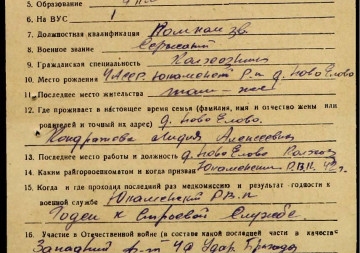 5. Образование
6. На ВУС 1
7. Должностная квалификация Помком зв.
8. Военное звание Сержант
9. Гражданская специальность Колхозник
10. Место рождения УАССР. Юкаменский Р-н д. Ново Елово
11. Последнее место жительства
12. Где проживает в настоящее время семья (фамилия, имя и отчество жены или
родителей и точный их адрес) д. Ново Елово
Кондратьева Лидия Алексеевна
13. Последнее место работы и должность д. Ново Елово Колхоз
14. Каким райгорвоенкоматом и когда призван Юкаменским Р.В.К.
15. Когда и где проходил последний раз медкомиссию и результат годности к
военной службе Юкаменский РВ.К.
Годен к Строевой Службе.
16. Участие в Отечественной войне в составе какой последней части в качестве
Западный ф-т Удар Бригада